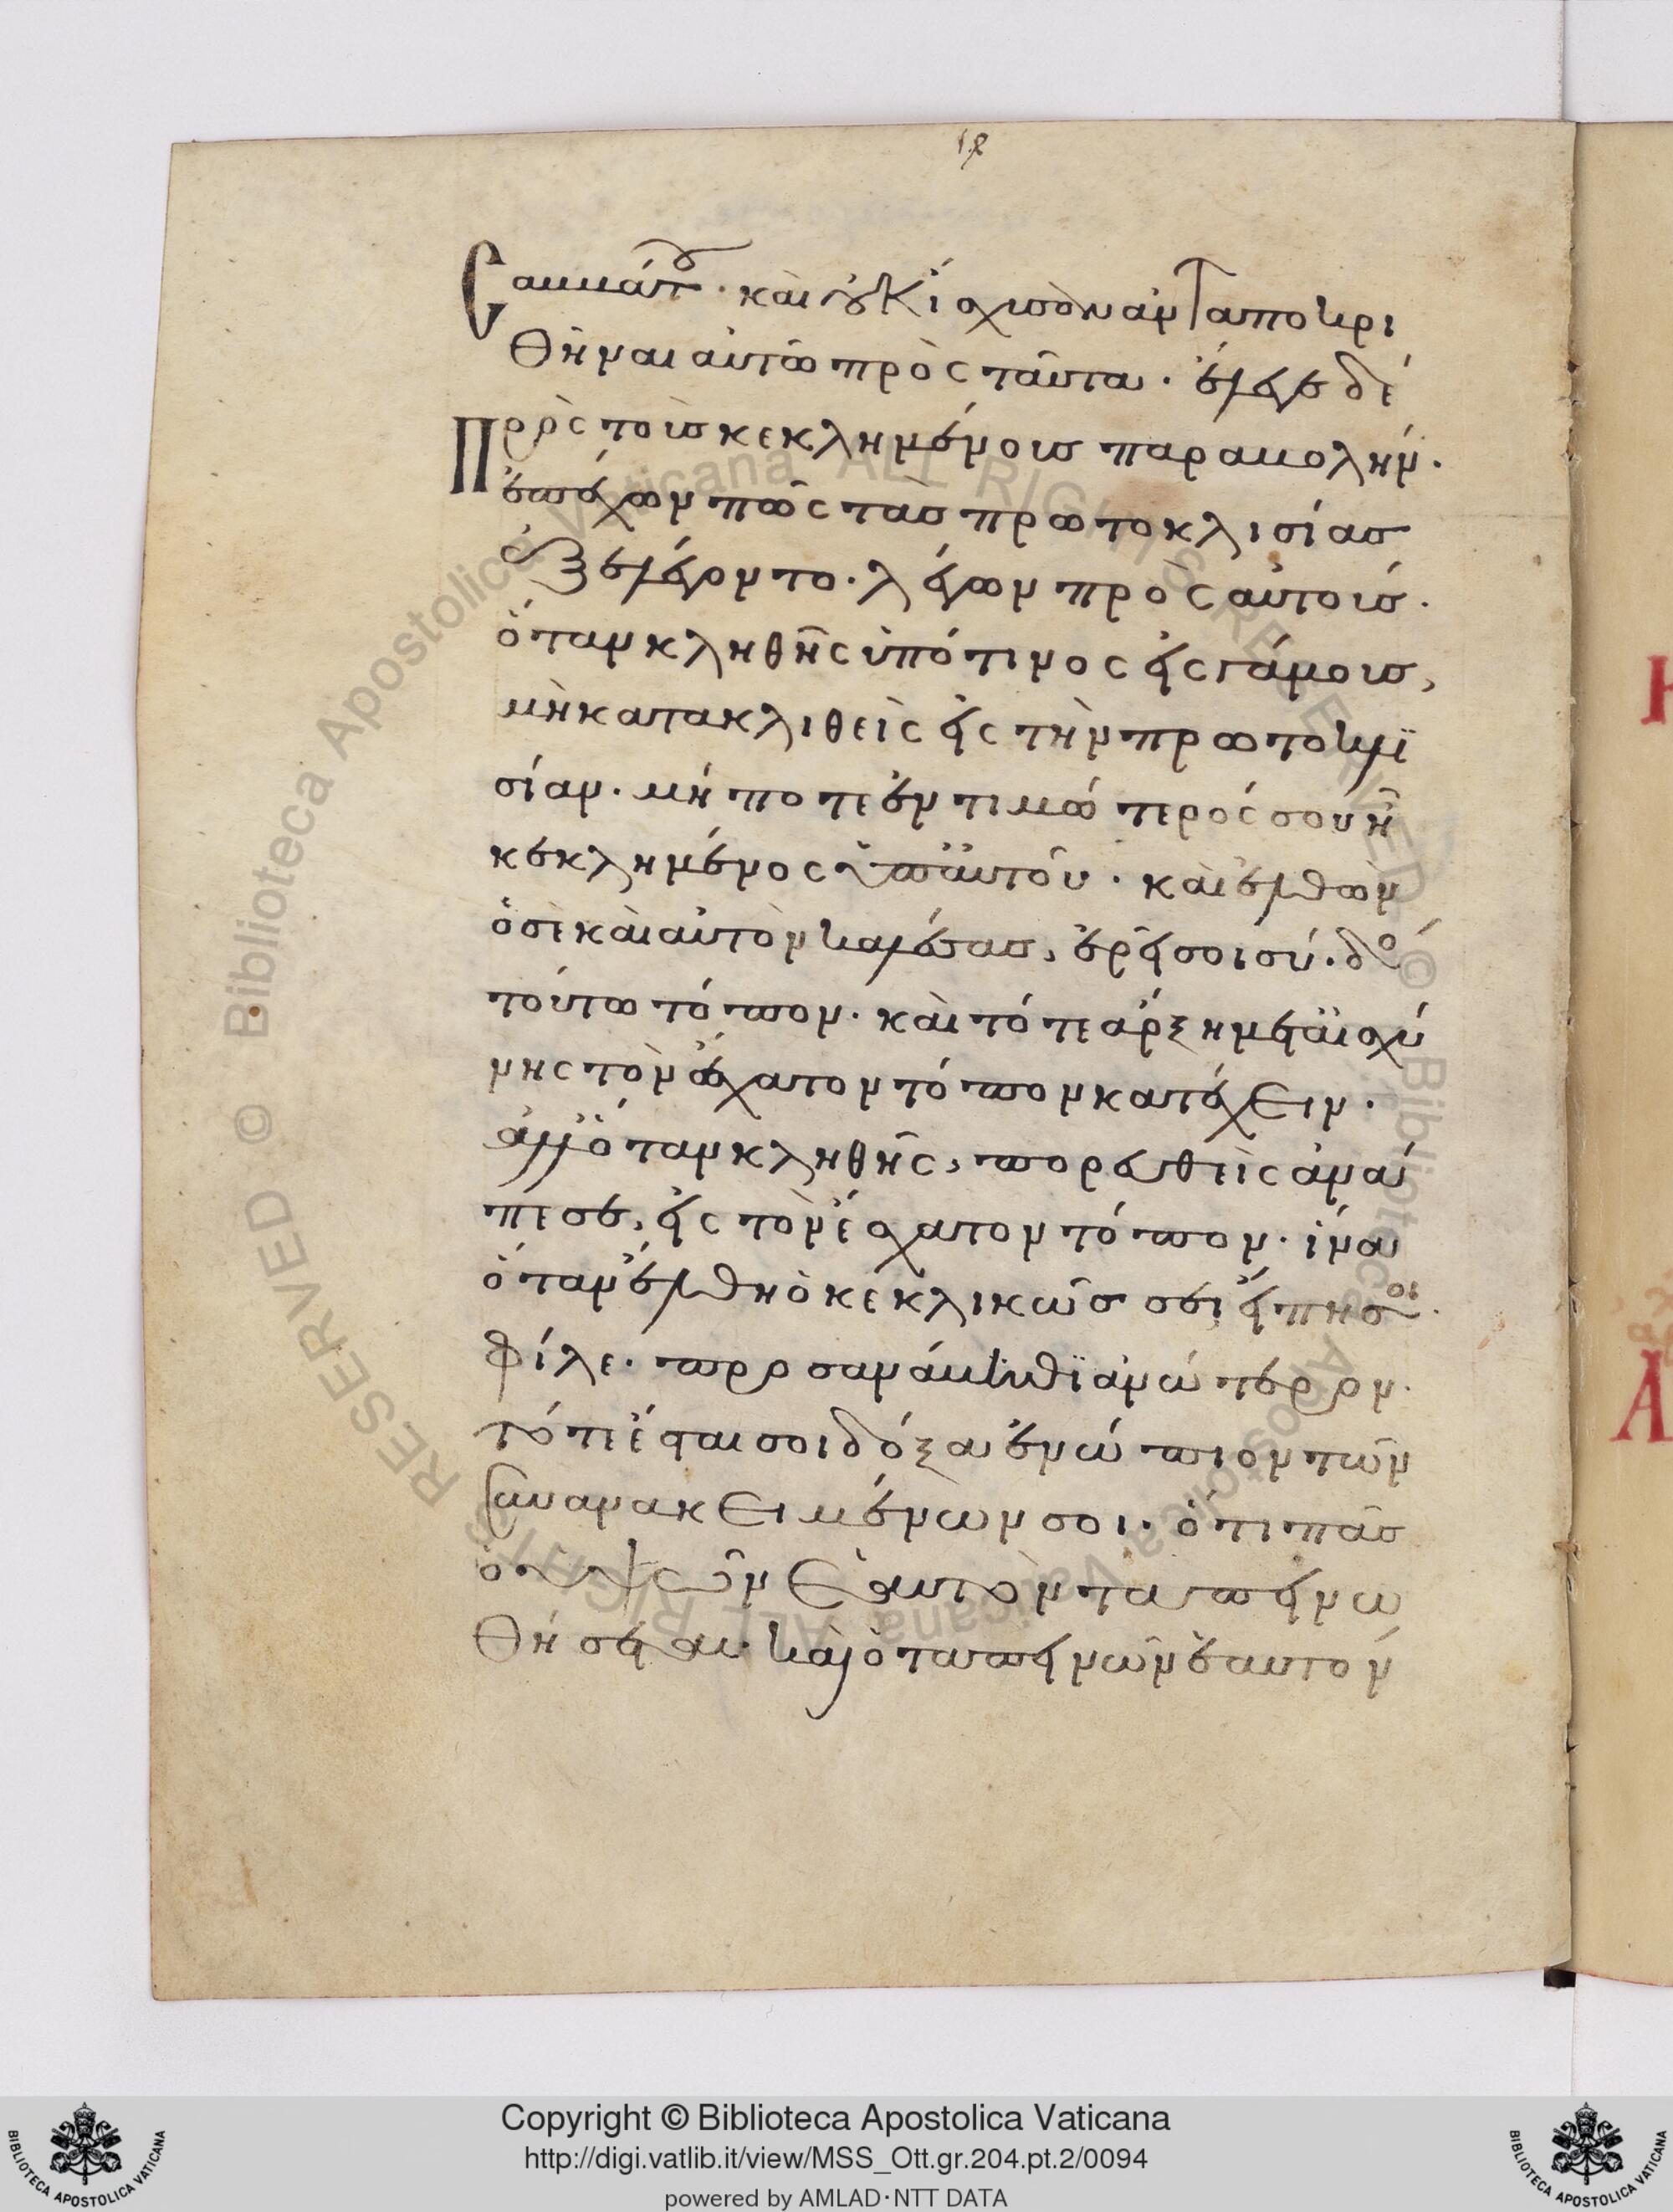 Σαββάτου. καὶ οὐκ ἴσχυσαν ἀνταποκρι
θῆναι αὐτῶ πρὸς ταῦτα. ἔλεγε δὲ
Πρὸς τοὺς κεκλημένους παραβολήν.
ἐπέχων πῶς τὰς πρωτοκλισίας
ἐξελέγοντο. λέγων πρὸς αὐτούς.
ὅταν κληθῆς ὑπό τινος εἰς γάμους,
μὴ κατακλιθεὶς εἰς τὴν πρωτοκλϊ
σίαν. μή ποτε ἐντιμώτερός σου ἦ
κεκλημένος ὑπ' αὐτοῦ. καὶ ἐλθὼν
ὁ σὲ καὶ αὐτὸν καλέσας, ἐρεῖ σοι σύ. δὸ
τούτω τόπον. καὶ τότε ἄρξη μετ' αἰσχύ
νης τὸν ἔσχατον τόπον κατέχειν.
ἀλλ' ὅταν κληθῆς, πορευθεὶς ἀνά
πεσε, εἰς τὸν ἔσχατον τόπον. ἵνα
ὅταν ἔλθη ὁ κεκληκώς σε, εἴπη σοι.
φίλε. προσανάβηθϊ ἀνώτερον.
τότε ἔσται σοι δόξα ἐνώπιον τῶν
συνανακειμένων σοι. ὅτι πᾶς
ὁ ὑψῶν ἑαυτὸν ταπεινω
θήσεται. καὶ ὁ ταπεινῶν ἑαυτὸν
Copyright © Biblioteca Apostolica Vaticana
http://digi.vatlib.it/view/MSS_Ott.gr.204.pt.2/0094
powered by AMLAD·NTT DATA